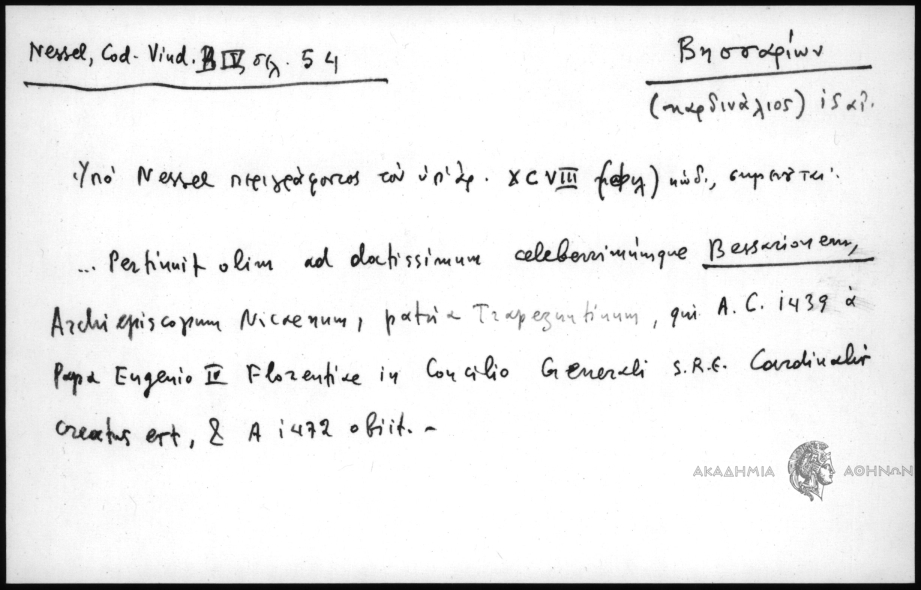 Nessel, Cod. Vind. IV, σελ. 54
Βησσαρίων
(καρδινάλιος) ἰδ.
Ὑπό Nessel περιγράφοντος τόν ὑπ' ἀρ. XCVIII κώδ., σημειοῦται:
... Pertinuit olim ad doctissimum celeberrimúmque Bessarionem,
Archiepiscopum Nicaenum, patria Trapezuntinum, qui A. C. 1439 à
Papa Eugenio IV Florentiae in Concilio Generali S.R.E. Cardinalis
creatus est, & A 1472 obiit. -
ΑΚΑΔΗΜΙΑ ΑΘΗΝΩΝ